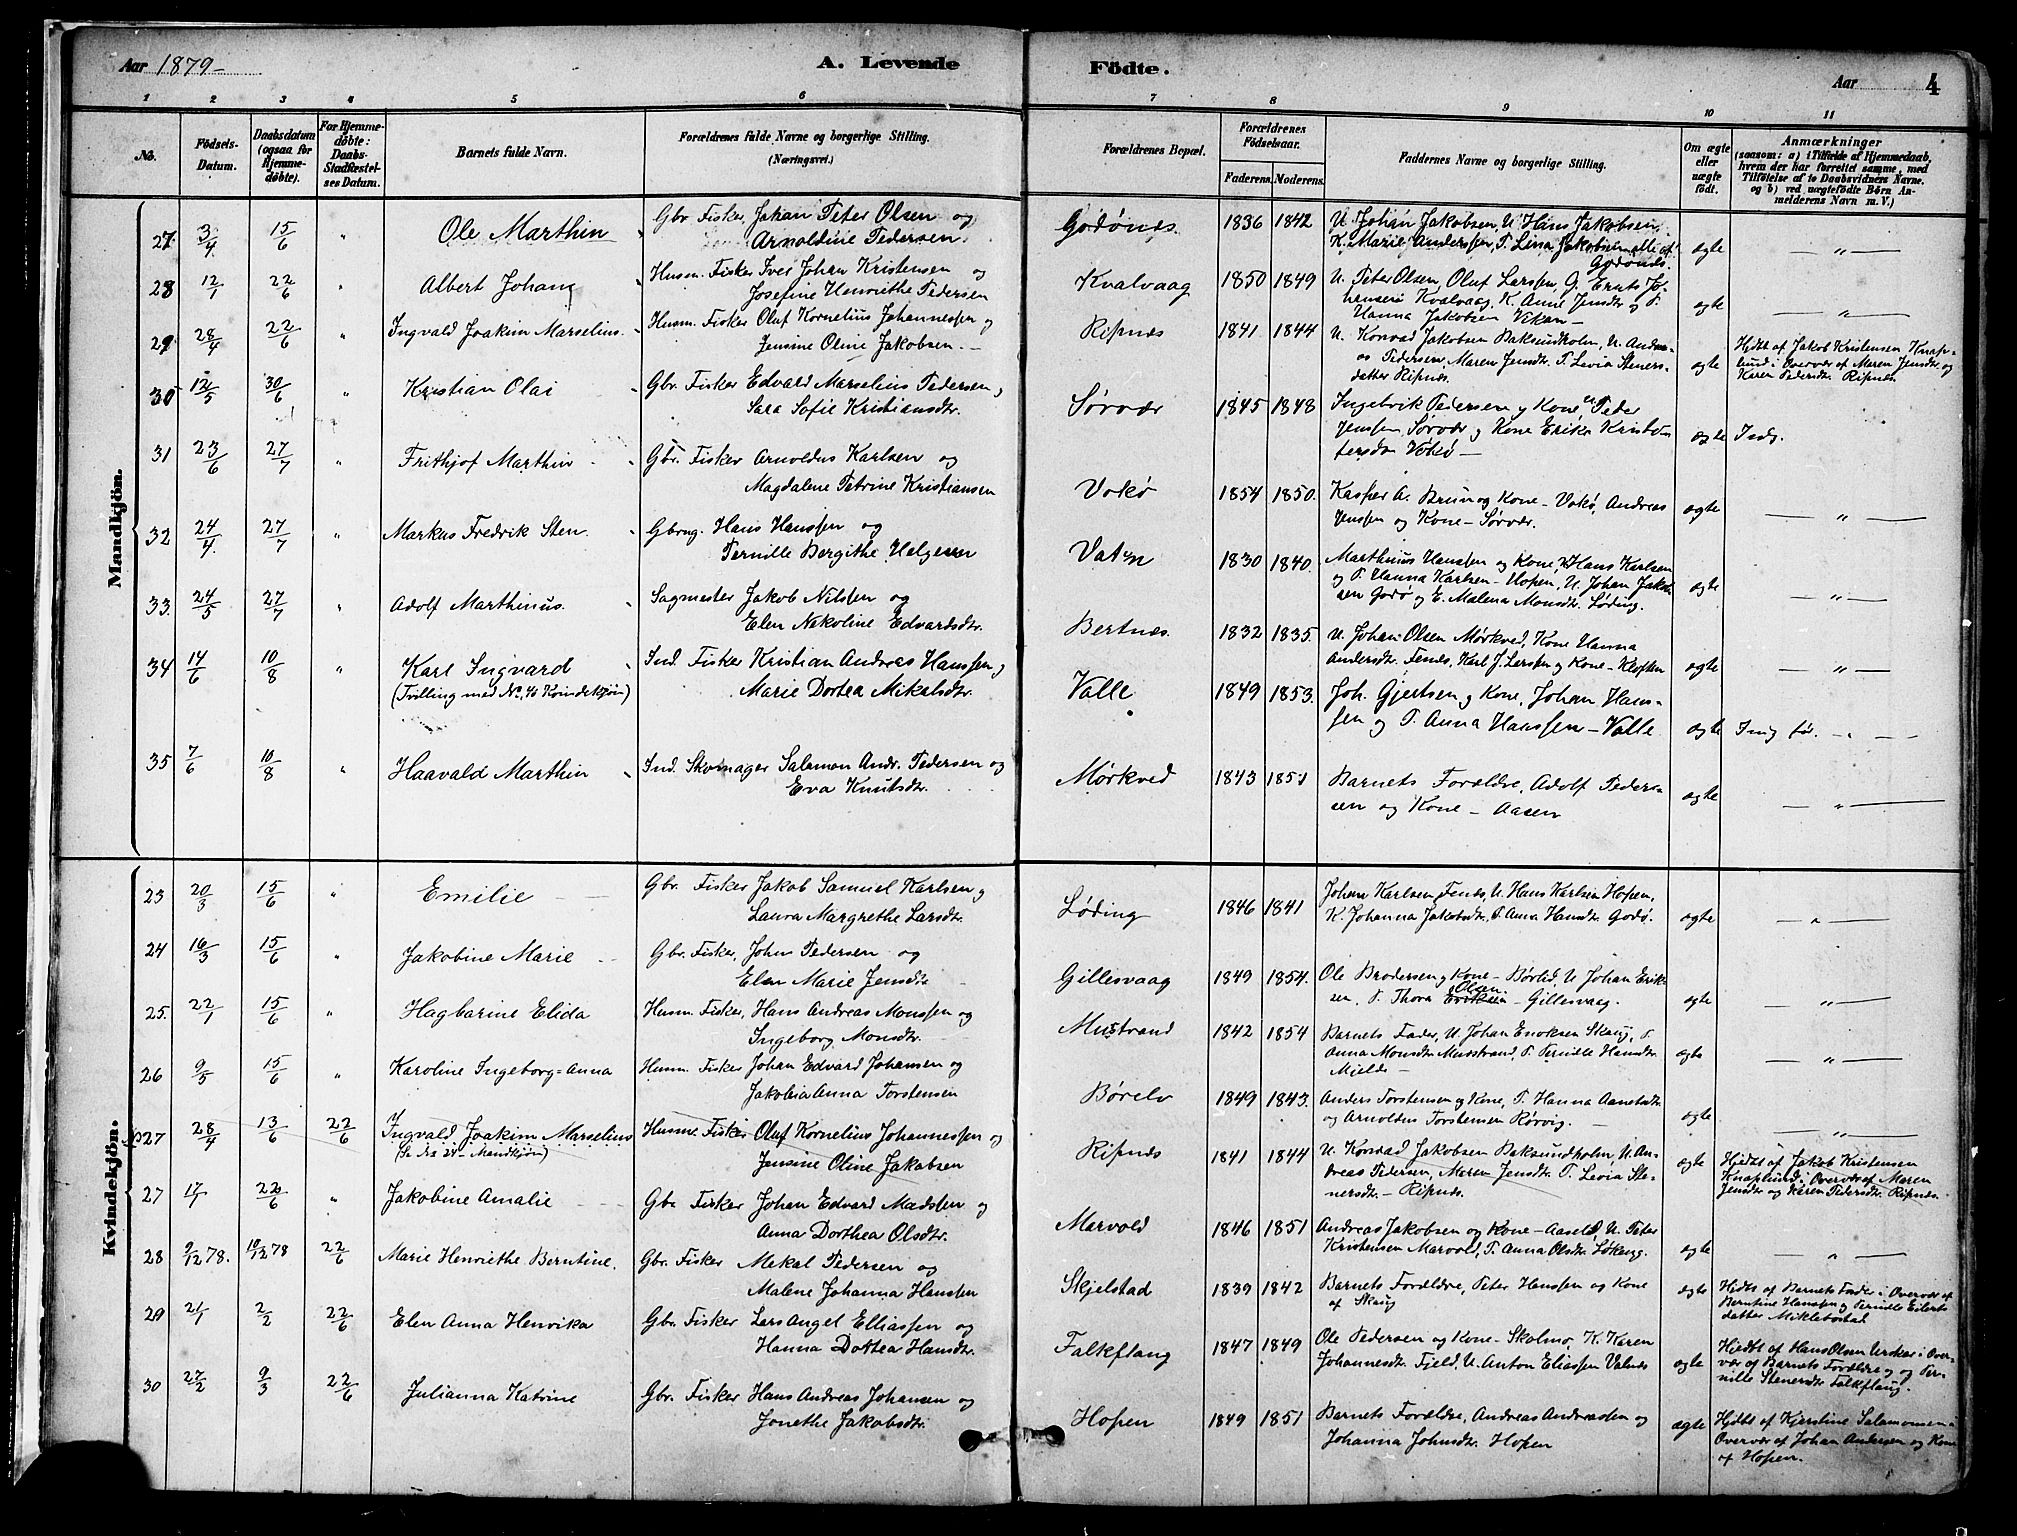 Aar 1879-
A. Levende
Födte.
Aar
4
1 2 3 4 5 6 7 8 9 10 11
No.
Födsels-
Datum.
Daabsdatum
(ogsaa for
Hjemme-
döbte).
For Hjemme-
döbte:
Daabs-
Stadfæstel-
ses Datum.
Barnets fulde Navn.
Forældrenes fulde Navne og borgerlige Stilling.
(Næringsvei.)
Forældrenes Bopæl.
Forældrenes
Födselsaar.
Faderens. Moderens.
Faddernes Navne og borgerlige Stilling.
Om ægte
eller
uægte
födt.
Anmærkninger
(saasom: a) i Tilfælde af Hjemmedaab,
hvem der har forrettet samme, med
Tilföielse af to Daabsvidners Navne.
og b) ved uægtefödte Börn An-
melderens Navn m. V.)
Mandkjön.
27. 3/4. 15/6 " Ole Marthin Gbr Fisker, Johan Peter Olsen og
Arnoldine Pedersen.
Godönes. 1836 1842 U. Johan Jakobsen, U. Hans Jakobsen,
K. Marie Anderssen, P. Lina Jakobsen alle af
Godönes. ægte — " —
28 12/1 22/6 " Albert Johan Husm. Fisker Iver Johan Kristensen og
Josefine Henriethe Pedersen
Kvalvaag 1850 1849 U. Peter Olsen, Oluf Larssen, G. Ernts Jo-
hansen Kvalvaag, K. Anne Jensdtr og P.
Hanna Jakobsen Vikan — ægte — " —
29. 28/4 22/6 " Ingvald Joakim Marselius. Husm. Fisker Oluf Kornelius Johannessen og
Jensine Oline Jakobsen. —
Ripnes 1841 1844 U. Konrad Jakobsen Baksundholm, U. Andre-
as Pedersen, Maren Jensdtr. P. Levia Steners-
datter Ripnes. ægte Hjdbt af Jakob Kristensen Knap-
lund i Overvær af Maren Jensdtr. og
Karen Pedersdtr. Ripnes.
30 12/5 30/6 " Kristian Olai Gbr. Fisker Edvald Marselius Pedersen og
Sara Sofie Kristiansdtr.
Sørvær 1845 1848 Ingebrik Pedersen og Kone, U. Peder
Jenssen Sørvær og Kone Erika Kristof
fersdtr Vokø — ægte Inds.
31 23/6 27/7 " Frithjof Marthin Gbr. Fisker Arnoldus Karlsen og
Magdalene Petrine Kristiansen
Vokø 1854 1850. Kasper A. Bruun og Kone - Vokø, Andreas
Jenssen og Kone - Sørvær. ægte — " —
32 24/4. 27/7 " Markus Fredrik Sten. Gbrug. Hans Hanssen og
Pernille Bergithe Helgesen
Vatn 1830 1840. Marthinus Hanssen og Kone, U. Hans Karlsen
og P. Hanna Karlsen - Hopen, U. Johan Jakob-
sen Godø og E. Malena Monsdtr. Løding. ægte — " —
33. 24/5 27/7 " Adolf Marthinus. Sagmester Jakob Nilssen og
Elen Nekoline Edvardsdtr.
Bertnes. 1832 1835. U. Johan Olsen Mørkved, Kone Hanna
Andersdtr. Fenes, Karl J. Larssen og Kone - Kloften ægte — " —
34 14/6 10/8 " Karl Ingvard
(Tvilling med No. 41 Kvindekjön) Ind. Fisker Kristian Andreas Hanssen og
Marie Dortea Mikalsdtr.
Valle 1849 1853. Joh. Gjertsen og Kone, Johan Hans-
sen og P. Anna Hanssen - Valle ægte
35 7/6 10/8 " Haavald Marthin Ind. Skomager Salamon Andr. Pedersen og
Eva Knutsdtr.
Mørkved 1843 1851 Barnets Forældre, Adolf Peder-
sen og Kone - Aasen ægte — " —
Kvindekjön.
23 20/3 15/6 " Emilie Gbr. Fisker Jakob Samuel Karlsen og
Laura Margrethe Larsdtr.
Løding 1846 1841 Johan Karlsen Fenes, U. Hans Karlsen Hopen,
K. Johanna Jakobsdtr., P. Anna Hansdtr. Godø. ægte "
24 16/3 15/6 " Jakobine Marie Gbr. Fisker, John Pedersen og
Elen Marie Jensdtr
Gillesvaag 1849 1854. Ole Brodersen og Kone - Børlid, U. Johan Erik-
sen, P. Thora Eriksen Olsen - Gillesvaag. ægte — " —
25. 22/1 15/6 " Hagbarine Elida Husm. Fisker, Hans Andreas Monssen og
Ingeborg Monsdtr.
Mustrand 1842 1854 Barnets Fader, U. Johan Enoksen Skaug, P.
Anna Monsdtr Musstrand, P. Pernille Hansdtr.
Mjelde — ægte — " —
26 9/5 15/6 " Karoline Ingeborg=Anna Husm. Fisker Johan Edvard Johansen og
Jakobia Anna Torstensen
Børelv 1849 1843. Anders Torstensen og Kone, P. Hanna Aanetsdtr
og Arnoldus Torstensen Rørvig. — ægte — " —
27 28/4 13/6 22/6 Ingvald Joakim Marselius
(Se No 29 - Mandkjön) Husm. Fisker Oluf Kornelius Johannessen og
Jensine Oline Jakobsen
Ripnes 1841 1844 U. Konrad Jakobsen Baksundholm, U. An-
dreas Pedersen, Maren Jensdtr. P. Levia Ste-
nersdtr. - Ripnes. ægte Hjdbt af Jakob Kristensen
Knaplund i Overvær af Maren
Jensdtr og Karen Pedersdtr. Ripnes.
27 17/1 22/6 " Jakobine Amalie Gbr. Fisker Johan Edvard Madssen og
Anna Dorthea Olsdtr.
Marvold 1846 1851 Andreas Jakobsen og Kone - Aaseli, U. Peter
Kristensen Marvold, P. Anna Olsdtr. Løkaug. ægte — " —
28 9/12 78. 10/12 78 22/6 Marie Henriethe Berntine. Gbr. Fisker Mekal Pedersen og
Malene Johanna Hanssen
Skjelstad 1839 1842 Barnets Forældre, Peter Hanssen og Kone
af Skaug ægte Hjdbt af Barnets Fader i Overvær af
Berntine Hanssen og Pernille Eilerts
datter Miklebostad
29 21/1 2/2 22/6 Elen Anna Henrika Gbr. Fisker Lars Angel Elliassen og
Hanna Dottea Hansdtr.
Falkflaug 1847 1849 Ole Pedersen og Kone - Skolmo, K. Karen
Johannesdtr. Fjeld, U. Anton Eliassen Valnes ægte Hjdbt af Hans Olsen Urskar i Over-
vær af Barnets Forældre og P. Per-
nille Stenersdtr Falkflaug.
30 27/2 9/3 22/6 Julianna Katrine Gbr. Fisker Hans Andreas Johansen og
Jonethe Jakobsdtr.
Hopen 1849 1851 Barnets Forældre, Andreas Andreassen og
Johanna Johnsdtr. Hopen ægte Hjdbt af Kjerstine Salamonsen i
Overvær af Johan Andersen og Kone
af Hopen.